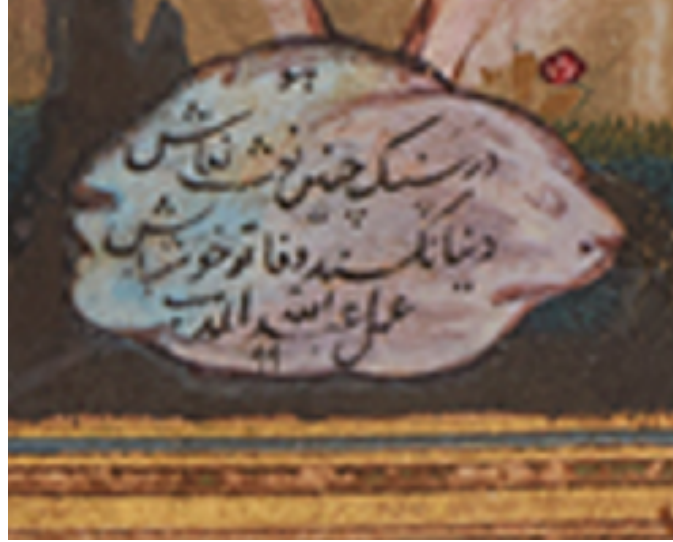 هو
در سنگ چنین نوشت نقاش
دنیا نکند وفا تو خوش باش
عمل عبدالله المذنب
۹۹